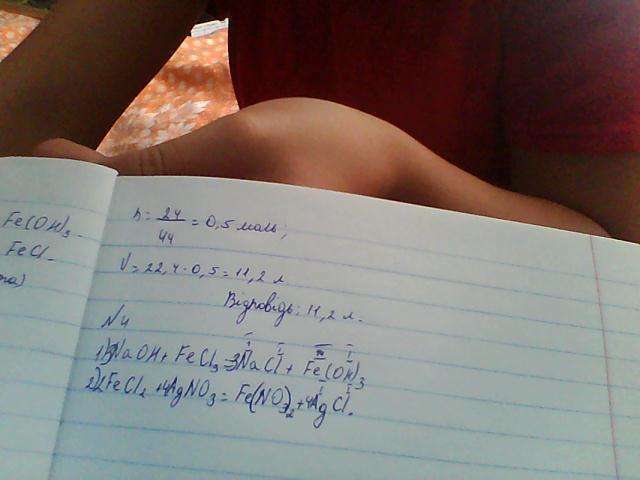 Fe(OH)₃
FeCl
n = 24/44 = 0,5 моль;
V = 22,4 · 0,5 = 11,2 л
Відповідь: 11,2 л.
N4
1) 3NaOH + FeCl₃ = 3NaCl + Fe(OH)₃
2) 2FeCl₂ + 4AgNO₃ = Fe(NO₃)₂ + 4AgCl.